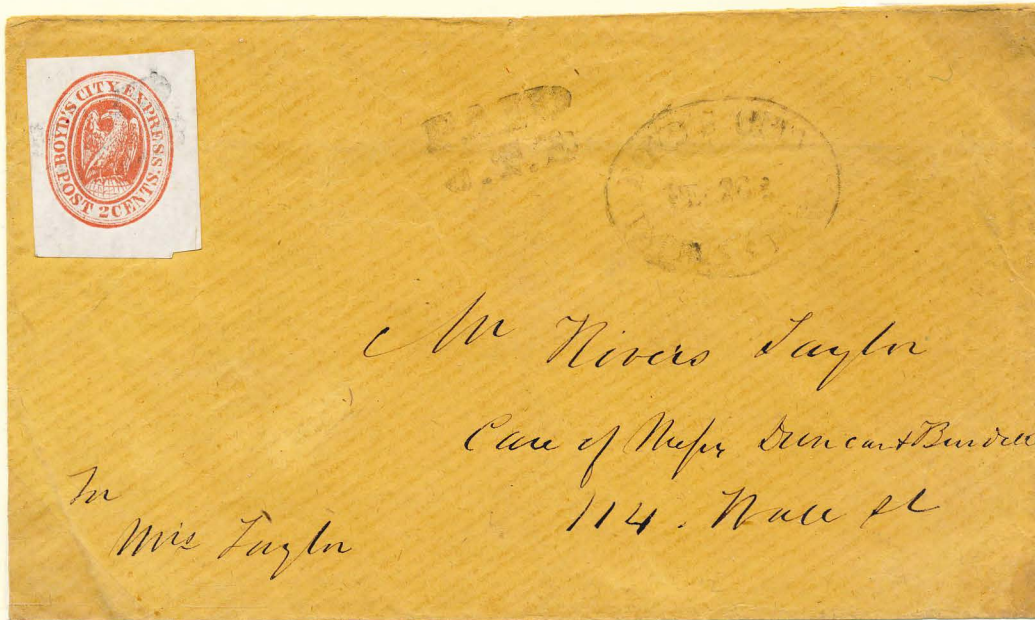 BOYD'S CITY EXPRESS.
POST 2 CENTS.
PAID
J.T.B.
Mr Nivers Taylor
Care of Messrs Duncan & Burdell
114. Wall St
For
Mrs Taylor